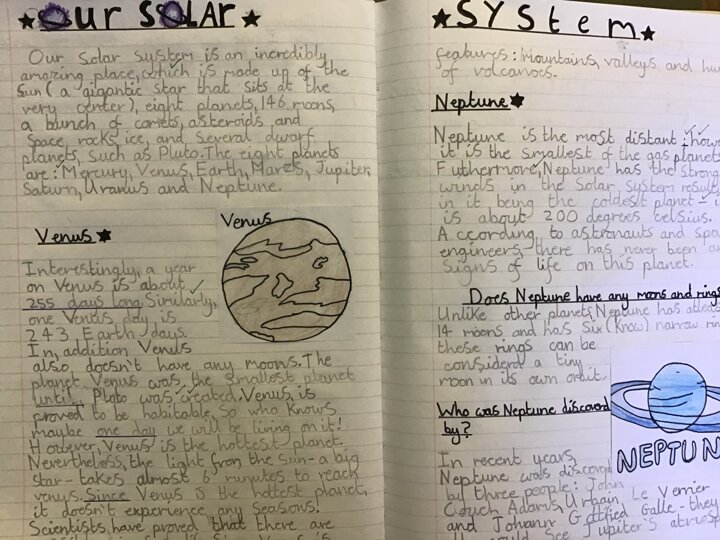 Our SOLAR
Our Solar system is an incredibly
amazing place, which is made up of the
Sun (a gigantic star that sits at the
very center), eight planets, 146 moons,
a bunch of comets, asteroids, and
Space, rocks, ice, and several dwarf
planets, such as Pluto. The eight planets
are: Mercury, Venus, Earth, Mares, Jupiter,
Saturn, Uranus and Neptune.
Venus
Venus
Interestingly, a year
on Venus is about
255 days long. Similarly,
one Venus day is
243 Earth days.
In, addition Venus
also doesn't have any moons. The
planet Venus was the smallest planet
until, Pluto was created. Venus, is
proved to be habitable, So who knows
maybe one day we will be living on it!
However, Venus is the hottest planet.
Nevertheless, the light from the sun - a big
star - takes almost 6 minutes to reach
venus. Since Venus is the hottest planet,
it doesn't experience any seasons!
Scientists, have proved that there are
System
features: Mountains, valleys, and hu
of volcanoes.
Neptune
Neptune is the most distant, how
it is the smallest of the gas planet
Futhermore, Neptune has the strong
winds in the Solar system result
in it being the coldest planet - i
is about 200 degrees celsius.
According to astronauts and spa
engineers, there has never been an
signs of life on this planet.
Does Neptune have any moons and rings
Unlike other planets, Neptune has atleas
14 moons and has Six (know) narrow rin
these rings can be
considerd a tiny
moon in its own orbit.
Who was Neptune discoverd
by?
NEPTUN
In recent years,
Neptune was discoverd
by three people: John
Couch Adams, Urbain Le Verrier
and Johann Gottfied Galle - they
could see Jupiter's atmosp